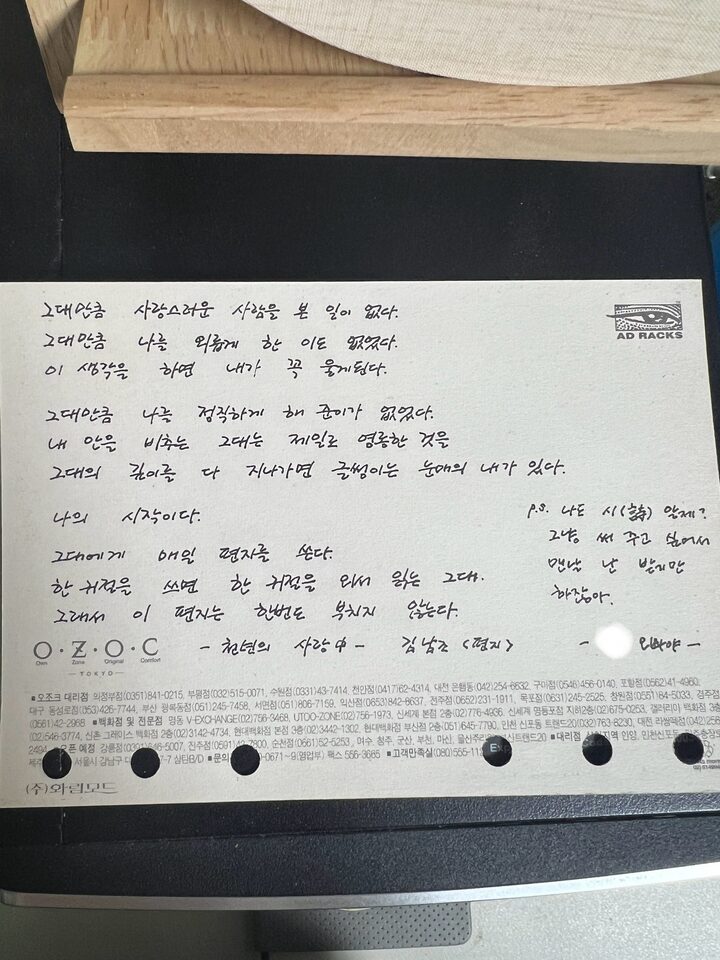 그대만큼 사랑스러운 사람을 본 일이 없다.
그대만큼 나를 외롭게 한 이도 없었다.
이 생각을 하면 내가 꼭 울게된다.
그대만큼 나를 정직하게 해 준이가 없었다.
내 안을 비추는 그대는 제일로 영롱한 것을
그대의 깊이를 다 지나가면 글썽이는 눈매의 내가 있다.
나의 시작이다.
그대에게 매일 편지를 쓴다.
한 귀절을 쓰면 한 귀절을 와서 읽는 그대.
그래서 이 편지는 한번도 부치지 않는다.
- 천년의 사랑 中 - 김남조 <편지>
AD RACKS
P.S. 나도 시(詩) 알제?
그냥 써 주고 싶어서
맨날 난 받기만
하잖아.
O·Z·O·C
Own Zone Original Comfort
TOKYO
■오조크 대리점 의정부점(0351)841-0215, 부평점(032)515-0071, 수원점(0331)43-7414, 천안점(0417)62-4314, 대전 은행동(042)254-6632, 구미점(0546)456-0140, 포항점(0562)41-4960,
대구 동성로점(053)426-7744, 부산 광복동점(051)245-7458, 서면점(051)806-7159, 익산점(0653)842-6637, 전주점(0652)231-1911, 목포점(0631)245-2525, 창원점(0551)84-5033, 경주점
(0561)42-2968 ■백화점 및 전문점 명동 V-EXCHANGE(02)756-3468, UTOO-ZONE(02)756-1973, 신세계 본점 2층(02)776-4936, 신세계 영등포점 지하2층(02)675-0253, 갤러리아 백화점 3층
(02)546-3774, 신촌 그레이스 백화점 2층(02)3142-4734, 현대백화점 본점 3층(02)3442-1302, 현대백화점 부산점 2층(051)645-7790, 인천 신포동 트랜드20(032)763-8230, 대전
오픈 예정 강릉점 진주점 순천점(0661)52-5253, 여수, 청주, 군산, 부천, 마산, 울산 ■대리점
서울시 강남구 삼탄B/D ■문의 0671~9(영업부) 팩스 556-3685 ■고객만족실(080)555-
(주)와림모드